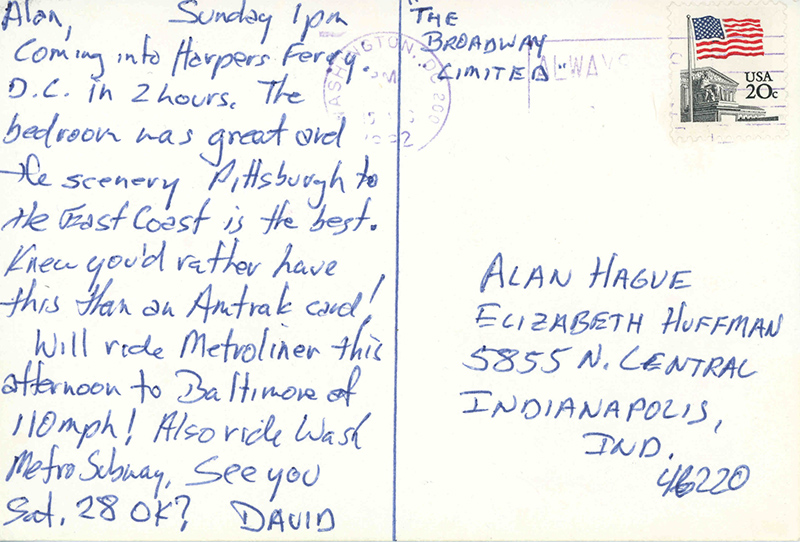 Alan, Sunday 1pm
Coming into Harpers Ferry.
D.C. in 2 hours. The
bedroom was great and
the scenery Pittsburgh to
the East Coast is the best.
Knew you'd rather have
this than an Amtrak card!
Will ride Metroliner this
afternoon to Baltimore at
110mph! Also ride Wash
Metro Subway. See you
Sat. 28 OK? DAVID
"THE
BROADWAY
LIMITED"
WASHINGTON, DC 200
PM
ALWAYS
USA
20c
ALAN HAGUE
ELIZABETH HUFFMAN
5855 N. CENTRAL
INDIANAPOLIS,
IND.
46220